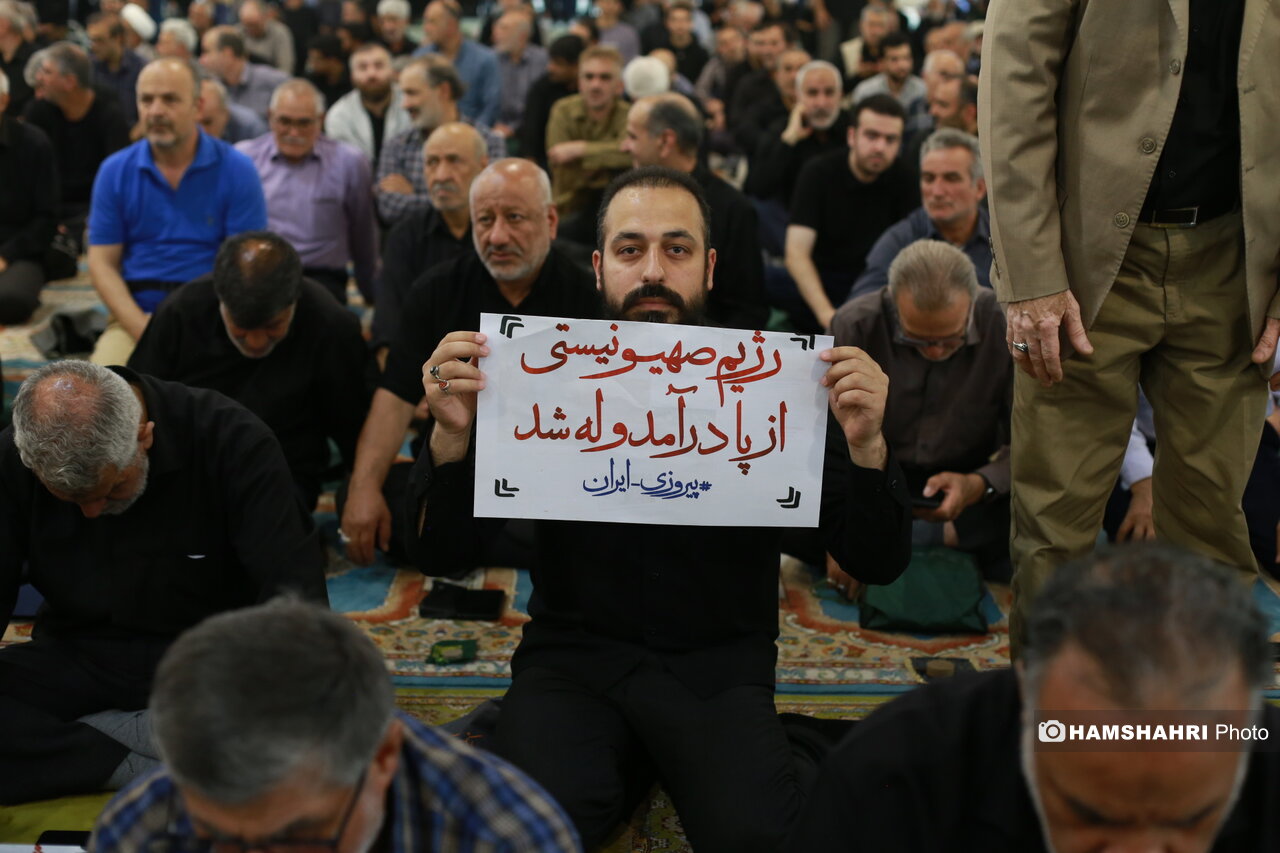 رژیم صهیونیستی
از پا درآمد و له شد
#پیروزی-ایران
HAMSHAHRI Photo